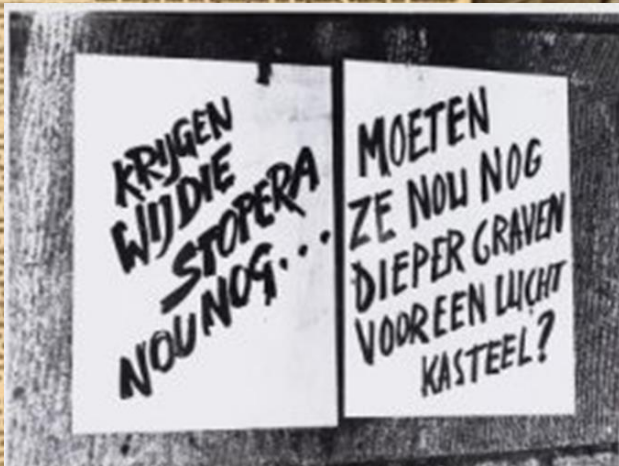 KRIJGEN
WIJ DIE
STOPERA
NOU NOG...
MOETEN
ZE NOU NOG
DIEPER GRAVEN
VOOR EEN LUCHT
KASTEEL?